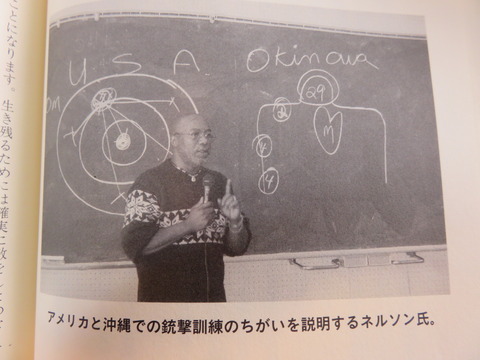 U. S. A. Okinawa
29
M
ことになります。生き残るためには確実に敵を
アメリカと沖縄での銃撃訓練のちがいを説明するネルソン氏。